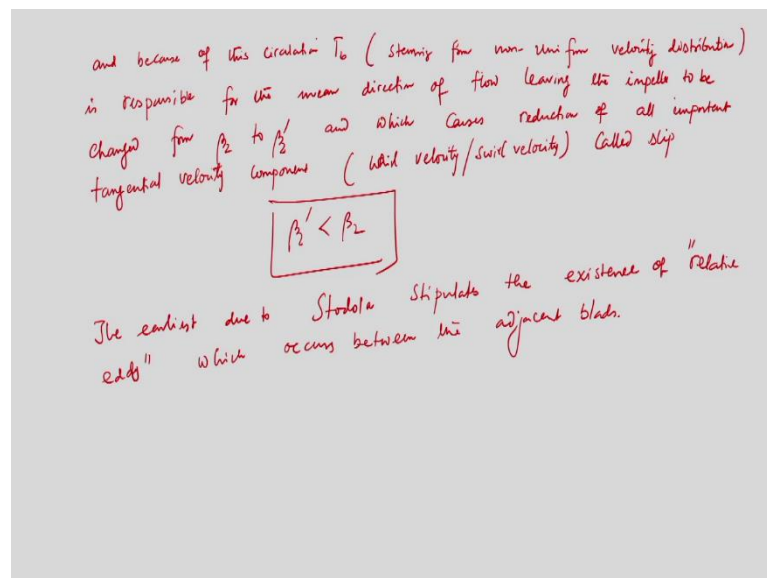 and because of this circulation Γb ( stemming from non-uniform velocity distribution )
is responsible for the mean direction of flow leaving the impeller to be
changed from β2 to β2' and which causes reduction of all important
tangential velocity component ( whirl velocity/swirl velocity) called slip
β2' < β2
The earliest due to Stodola stipulates the existence of "relative
eddy" which occurs between the adjacent blades.